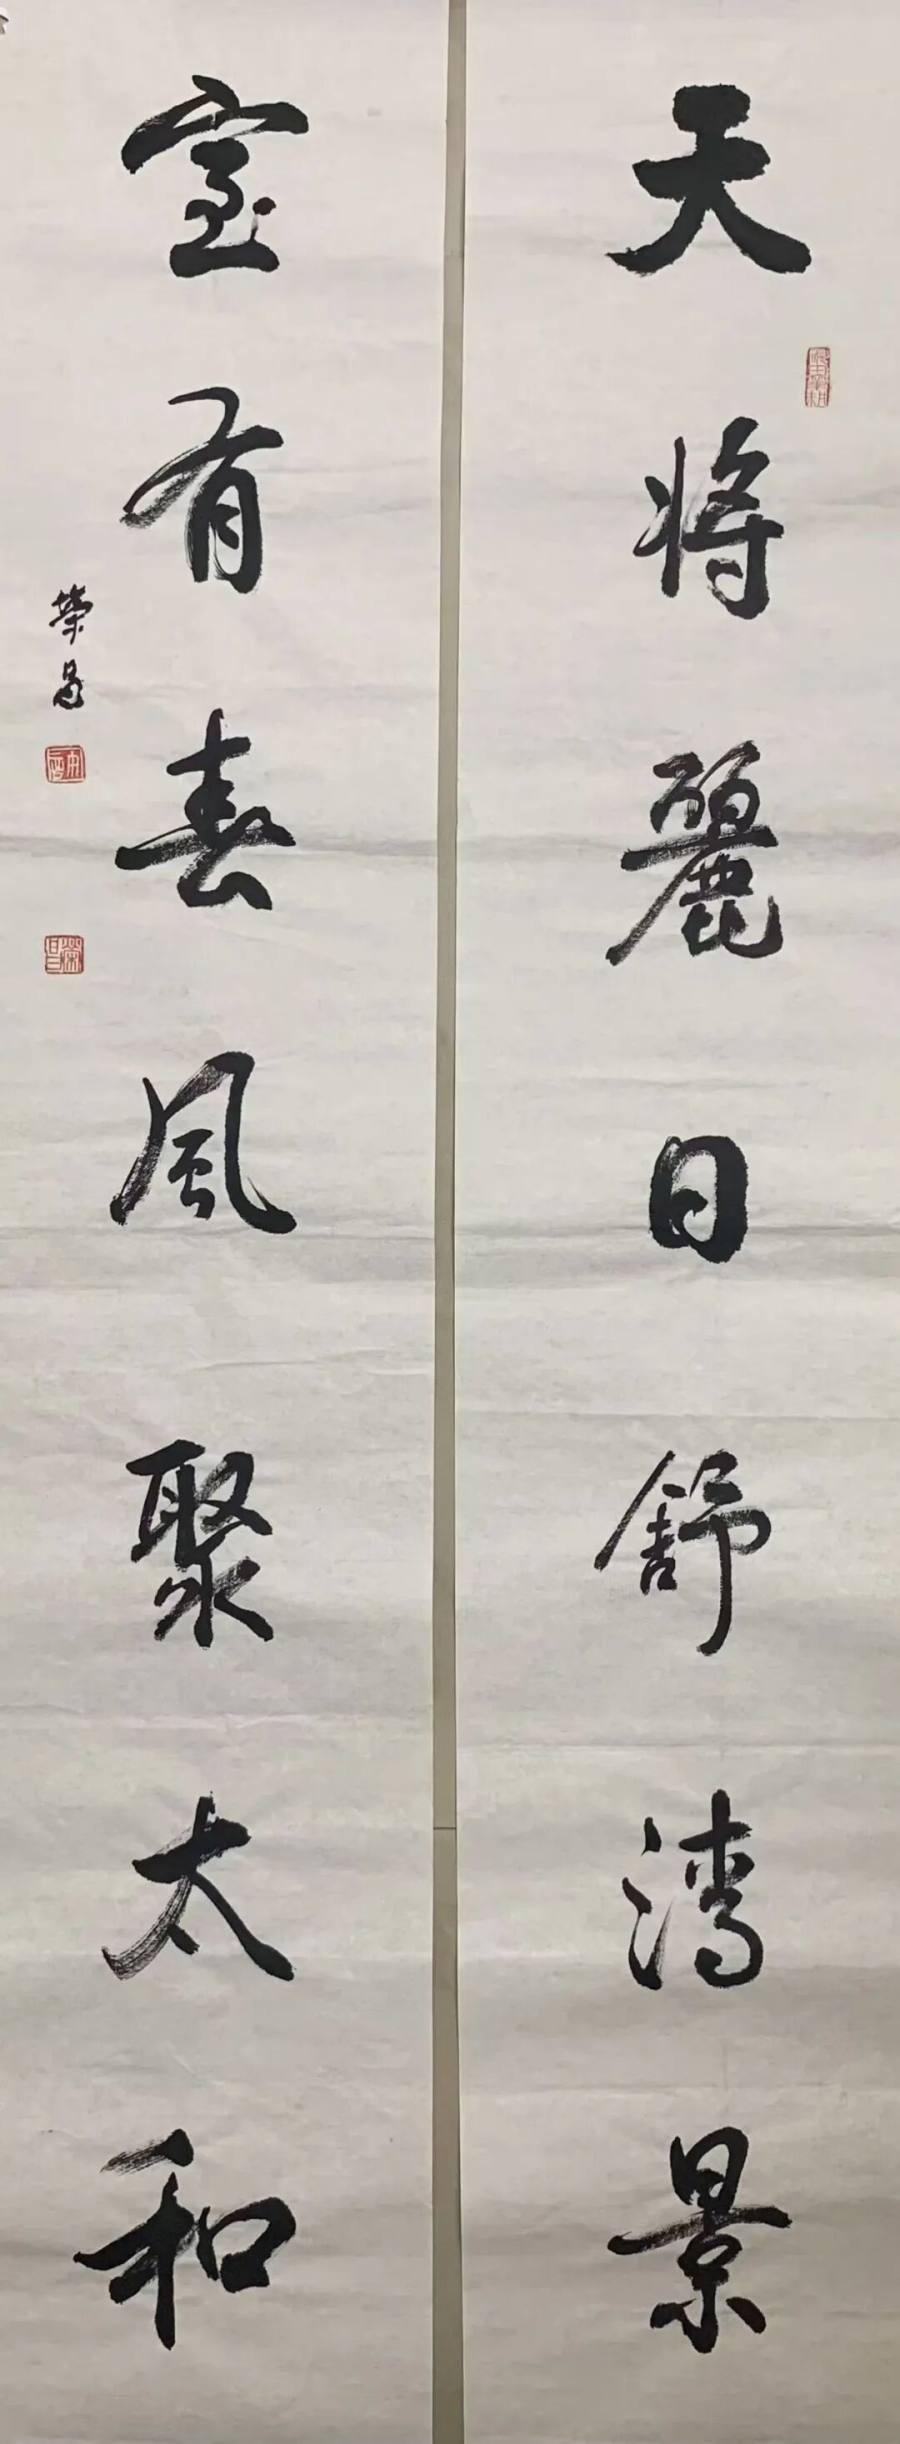 天將麗日舒清景
室有春風聚太和
榮昌